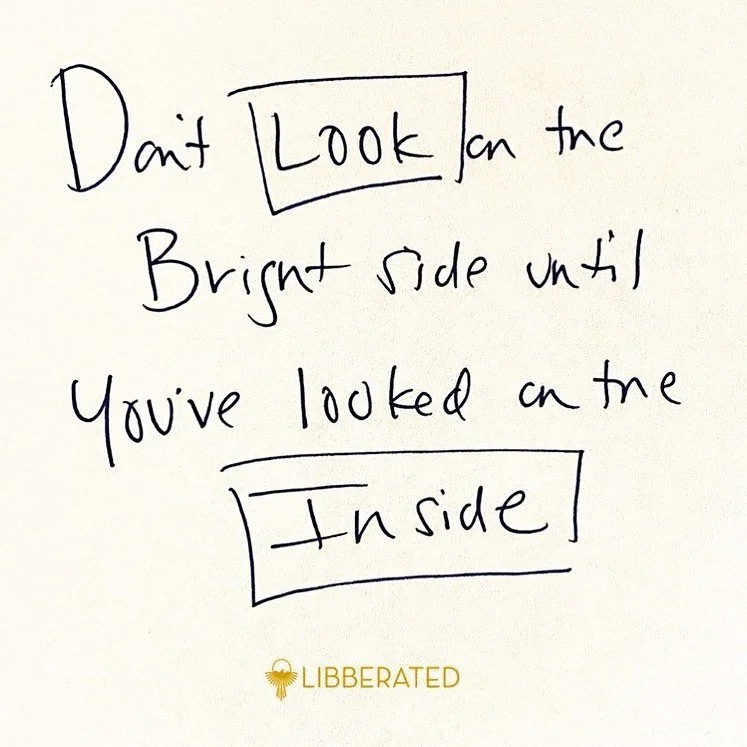 Don't Look on the
Bright side until
You've looked on the
Inside
LIBBERATED